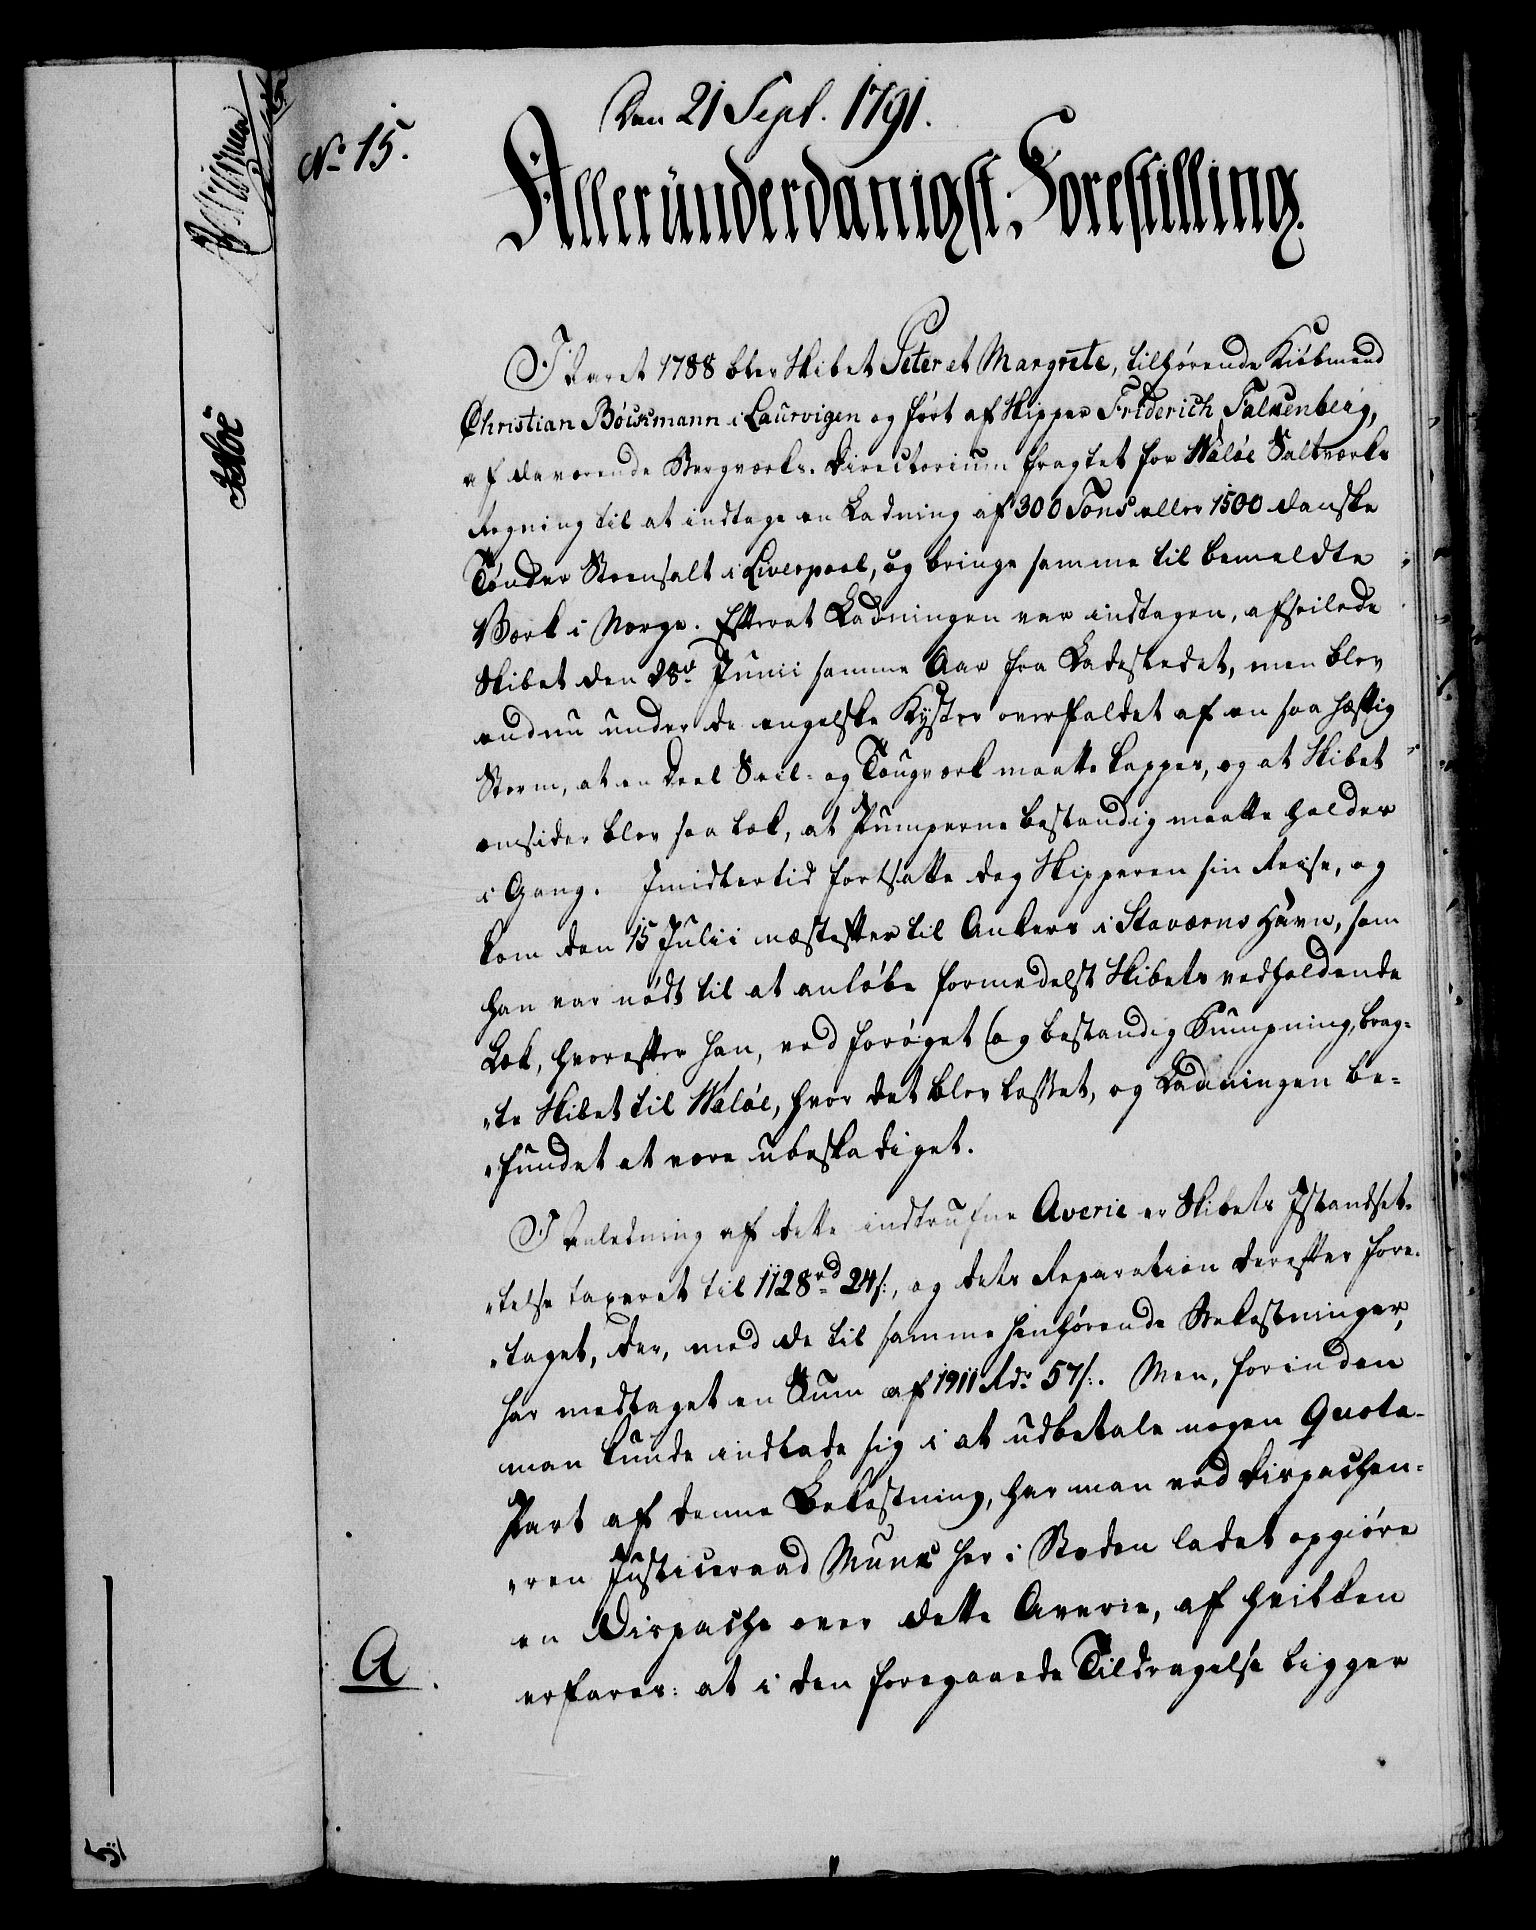 Den 21 Sept. 1791.
No 15.
Alleründerdanigst Forestilling.
I Aaret 1788 blev Skibet Peter et Margrete, tilhørende Kiøbmand
Christian Böckmann i Laurvigen og ført af Skipper Friderich Falkenberg,
af daværende Bergværks-Directorium fragtet for Waløe Saltværks
Regning til at indtage en Ladning af 300 Tons eller 1500 danske
Tønder Steensalt i Liverpool, og bringe samme til bemeldte
Værk i Norge. Efterat Ladningen var indtagen, afseilede
Skibet den 28de Junii samme Aar fra Ladestedet, men blev
endnu under de engelske Kyster overfaldet af en saa hæftig
Storm, at en Deel Seil- og Tougværk maatte kappes, og at Skibet
omsider blev saa læk, at Pumperne bestandig maatte holdes
i Gang. Imidlertid fortsatte dog Skipperen sin Reise, og
kom den 15 Julii næstefter til Ankers i Staværns Havn, som
han var nødt til at anløbe formedelst Skibets vedholdende
Læk, hvorefter han, ved forøget (og bestandig Pumpning, brag-
te Skibet til Waløe, hvor det blev losset, og Ladningen be-
fundet at være ubeskadiget.
I Anledning af dette indtrufne Averie er Skibets Istandsæt-
telse taxeret til 1128 rd 24 s:, og dets Reparation derefter fore-
taget, der, med de til samme henhørende Bekostninger,
har medtaget en Sum af 1911 Rd: 57 s:. Men, forinden
man kunde indlade sig i at udbetale nogen Quota-
Part af denne Bekostning, har man ved Dispacheu-
ren Justiceraad Munk her i Staden ladet opgiøre
en Dispache over dette Averie, af hvilken
A.
erfares: at i den foregaaede Tildragelse ligger